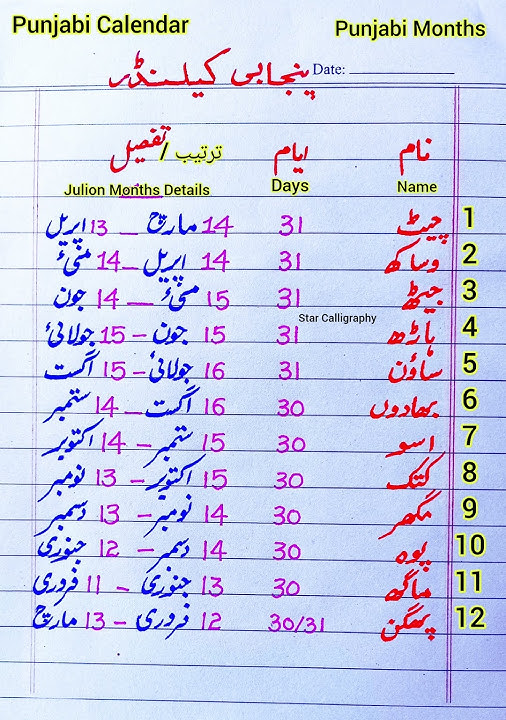 Punjabi Calendar
Punjabi Months
پنجابی کیلنڈر
Date:
نام ایام ترتیب / تفصیل
Name Days Julion Months Details
1 چیٹ 31 14 مارچ – 13 اپریل
2 وساکھ 31 14 اپریل – 14 مئی
3 جیٹھ 31 15 مئی – 14 جون
Star Calligraphy
4 ہاڑھ 31 15 جون – 15 جولائی
5 ساؤن 31 16 جولائی – 15 اگست
6 بھادوں 30 16 اگست – 14 ستمبر
7 اسو 30 15 ستمبر – 14 اکتوبر
8 کتک 30 15 اکتوبر – 13 نومبر
9 مگھر 30 14 نومبر – 13 دسمبر
10 پوہ 30 14 دسمبر – 12 جنوری
11 ماگھ 30 13 جنوری – 11 فروری
12 پھگن 30/31 12 فروری – 13 مارچ